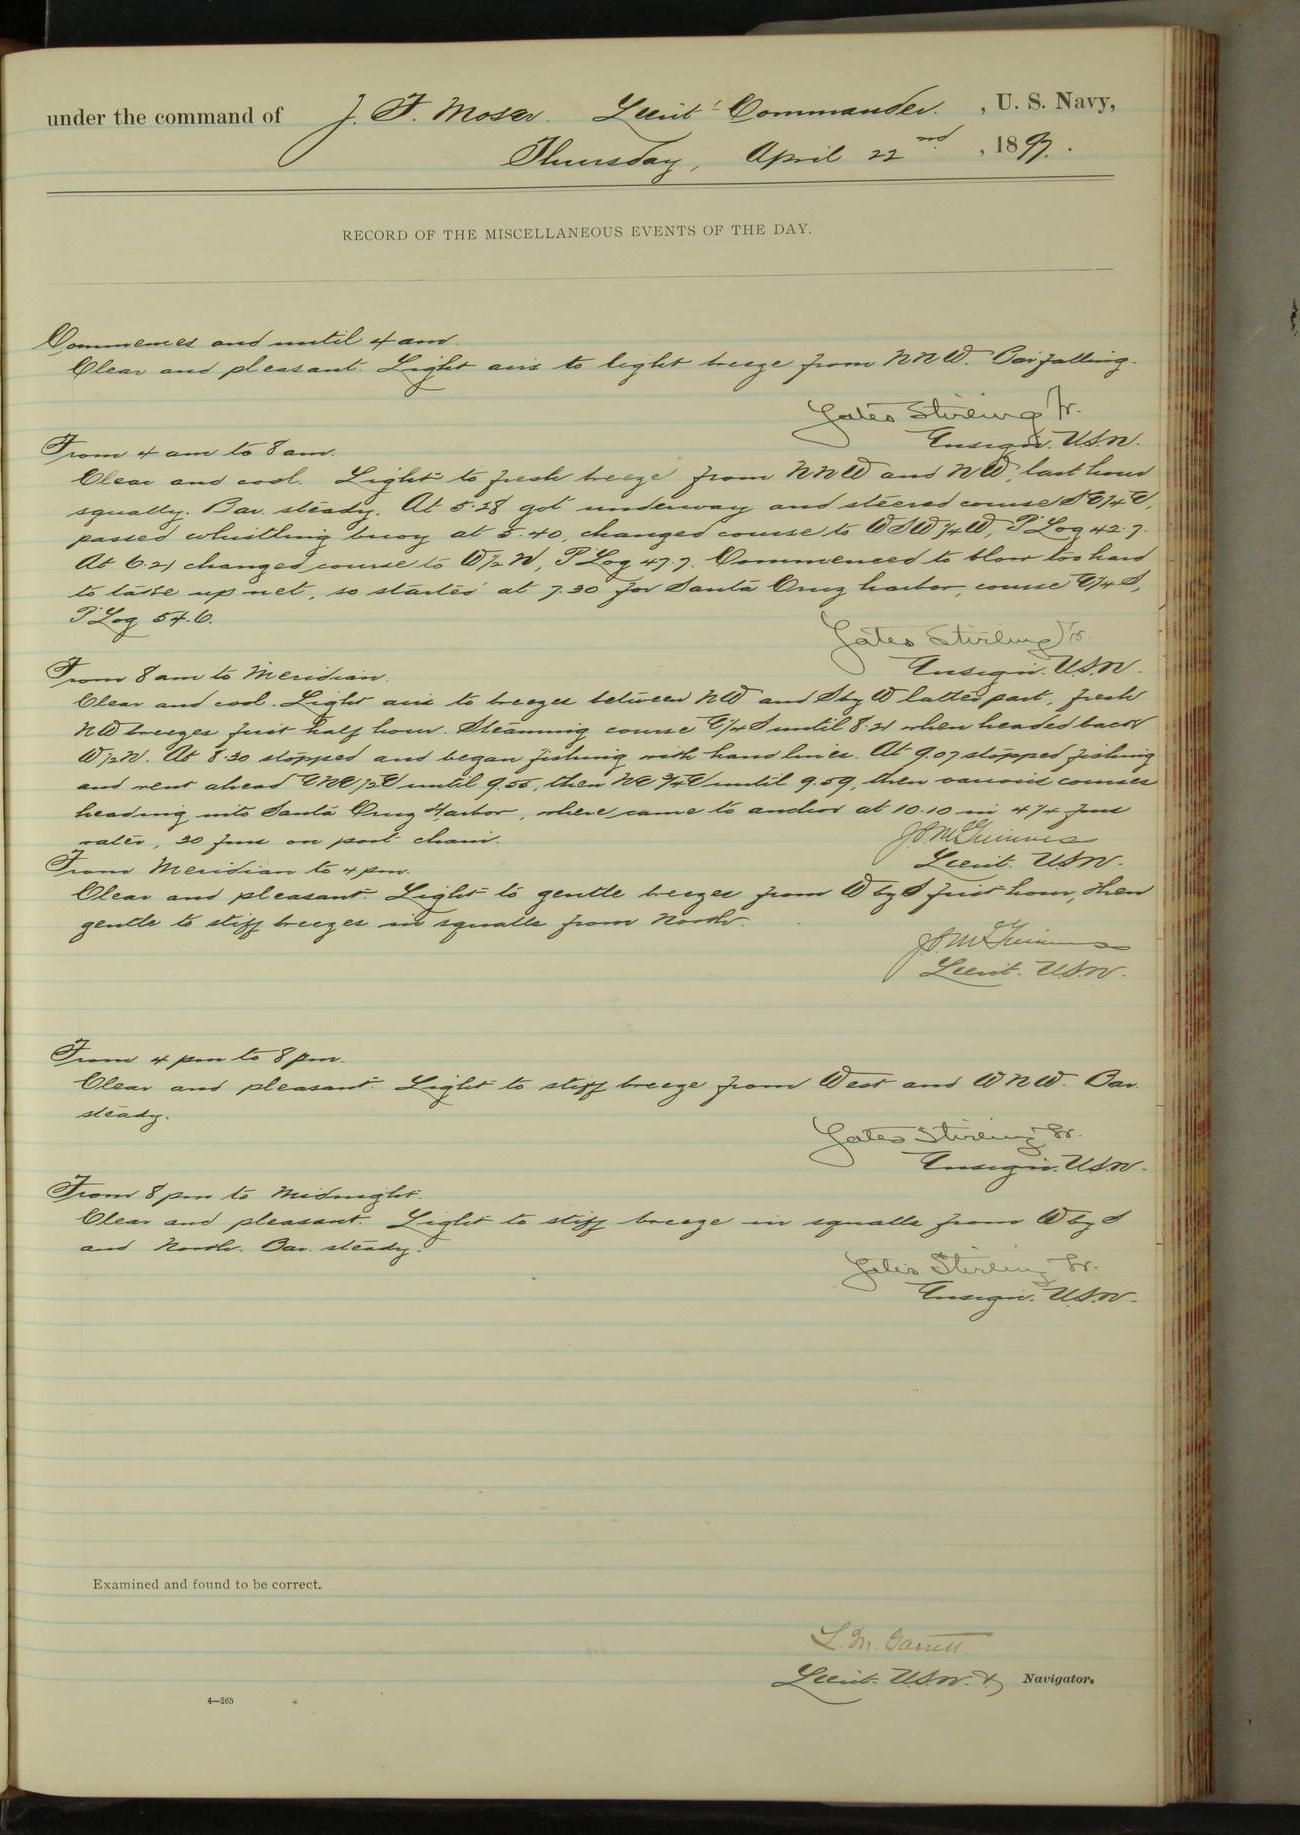 under the command of J. F. Moser. Lieut. Commander. , U. S. Navy,
Thursday, April 22nd , 1897.
RECORD OF THE MISCELLANEOUS EVENTS OF THE DAY.
Commences and until 4 am.
Clear and pleasant. Light airs to light breeze from NNW. Bar falling.
Yates Stirling Jr.
Ensign. U.S.N.
From 4 am to 8 am.
Clear and cool. Light to fresh breeze from NNW and NW, last hour
squally. Bar. steady. At 5.28 got underway and steered course SE1/4E,
passed whistling buoy at 5.40, changed course to WSW1/4W, P Log 42.7.
At 6.21 changed course to W1/2N, P Log 47.7. Commenced to blow too hard
to take up net, so started at 7.30 for Santa Cruz harbor, course E1/4S,
P Log 54.6.
Yates Stirling Jr.
Ensign. U.S.N.
From 8 am to Meridian.
Clear and cool. Light airs to breezes between NW and S by W latter part, fresh
NW breezes first half hour. Steaming course E1/4S until 8.21 when headed back
W1/2N. At 8.30 stopped and began fishing with hand lines. At 9.07 stopped fishing
and went ahead ENE1/2E until 9.55, then NE3/4E until 9.59, then various courses
heading into Santa Cruz Harbor, where came to anchor at 10.10 in 4 1/4 fms
water, 30 fms on port chain.
Lieut. U.S.N.
From Meridian to 4 pm.
Clear and pleasant. Light to gentle breezes from W by S first hour, then
gentle to stiff breezes in squalls from North.
Lieut. U.S.N.
From 4 pm to 8 pm.
Clear and pleasant. Light to stiff breeze from West and WNW. Bar.
steady.
Yates Stirling Jr.
Ensign. U.S.N.
From 8 pm to Midnight.
Clear and pleasant. Light to stiff breeze in squalls from W by S
and North. Bar. steady.
Yates Stirling Jr.
Ensign. U.S.N.
Examined and found to be correct.
L. M. Garrett.
Lieut. U.S.N. & Navigator.
4—265